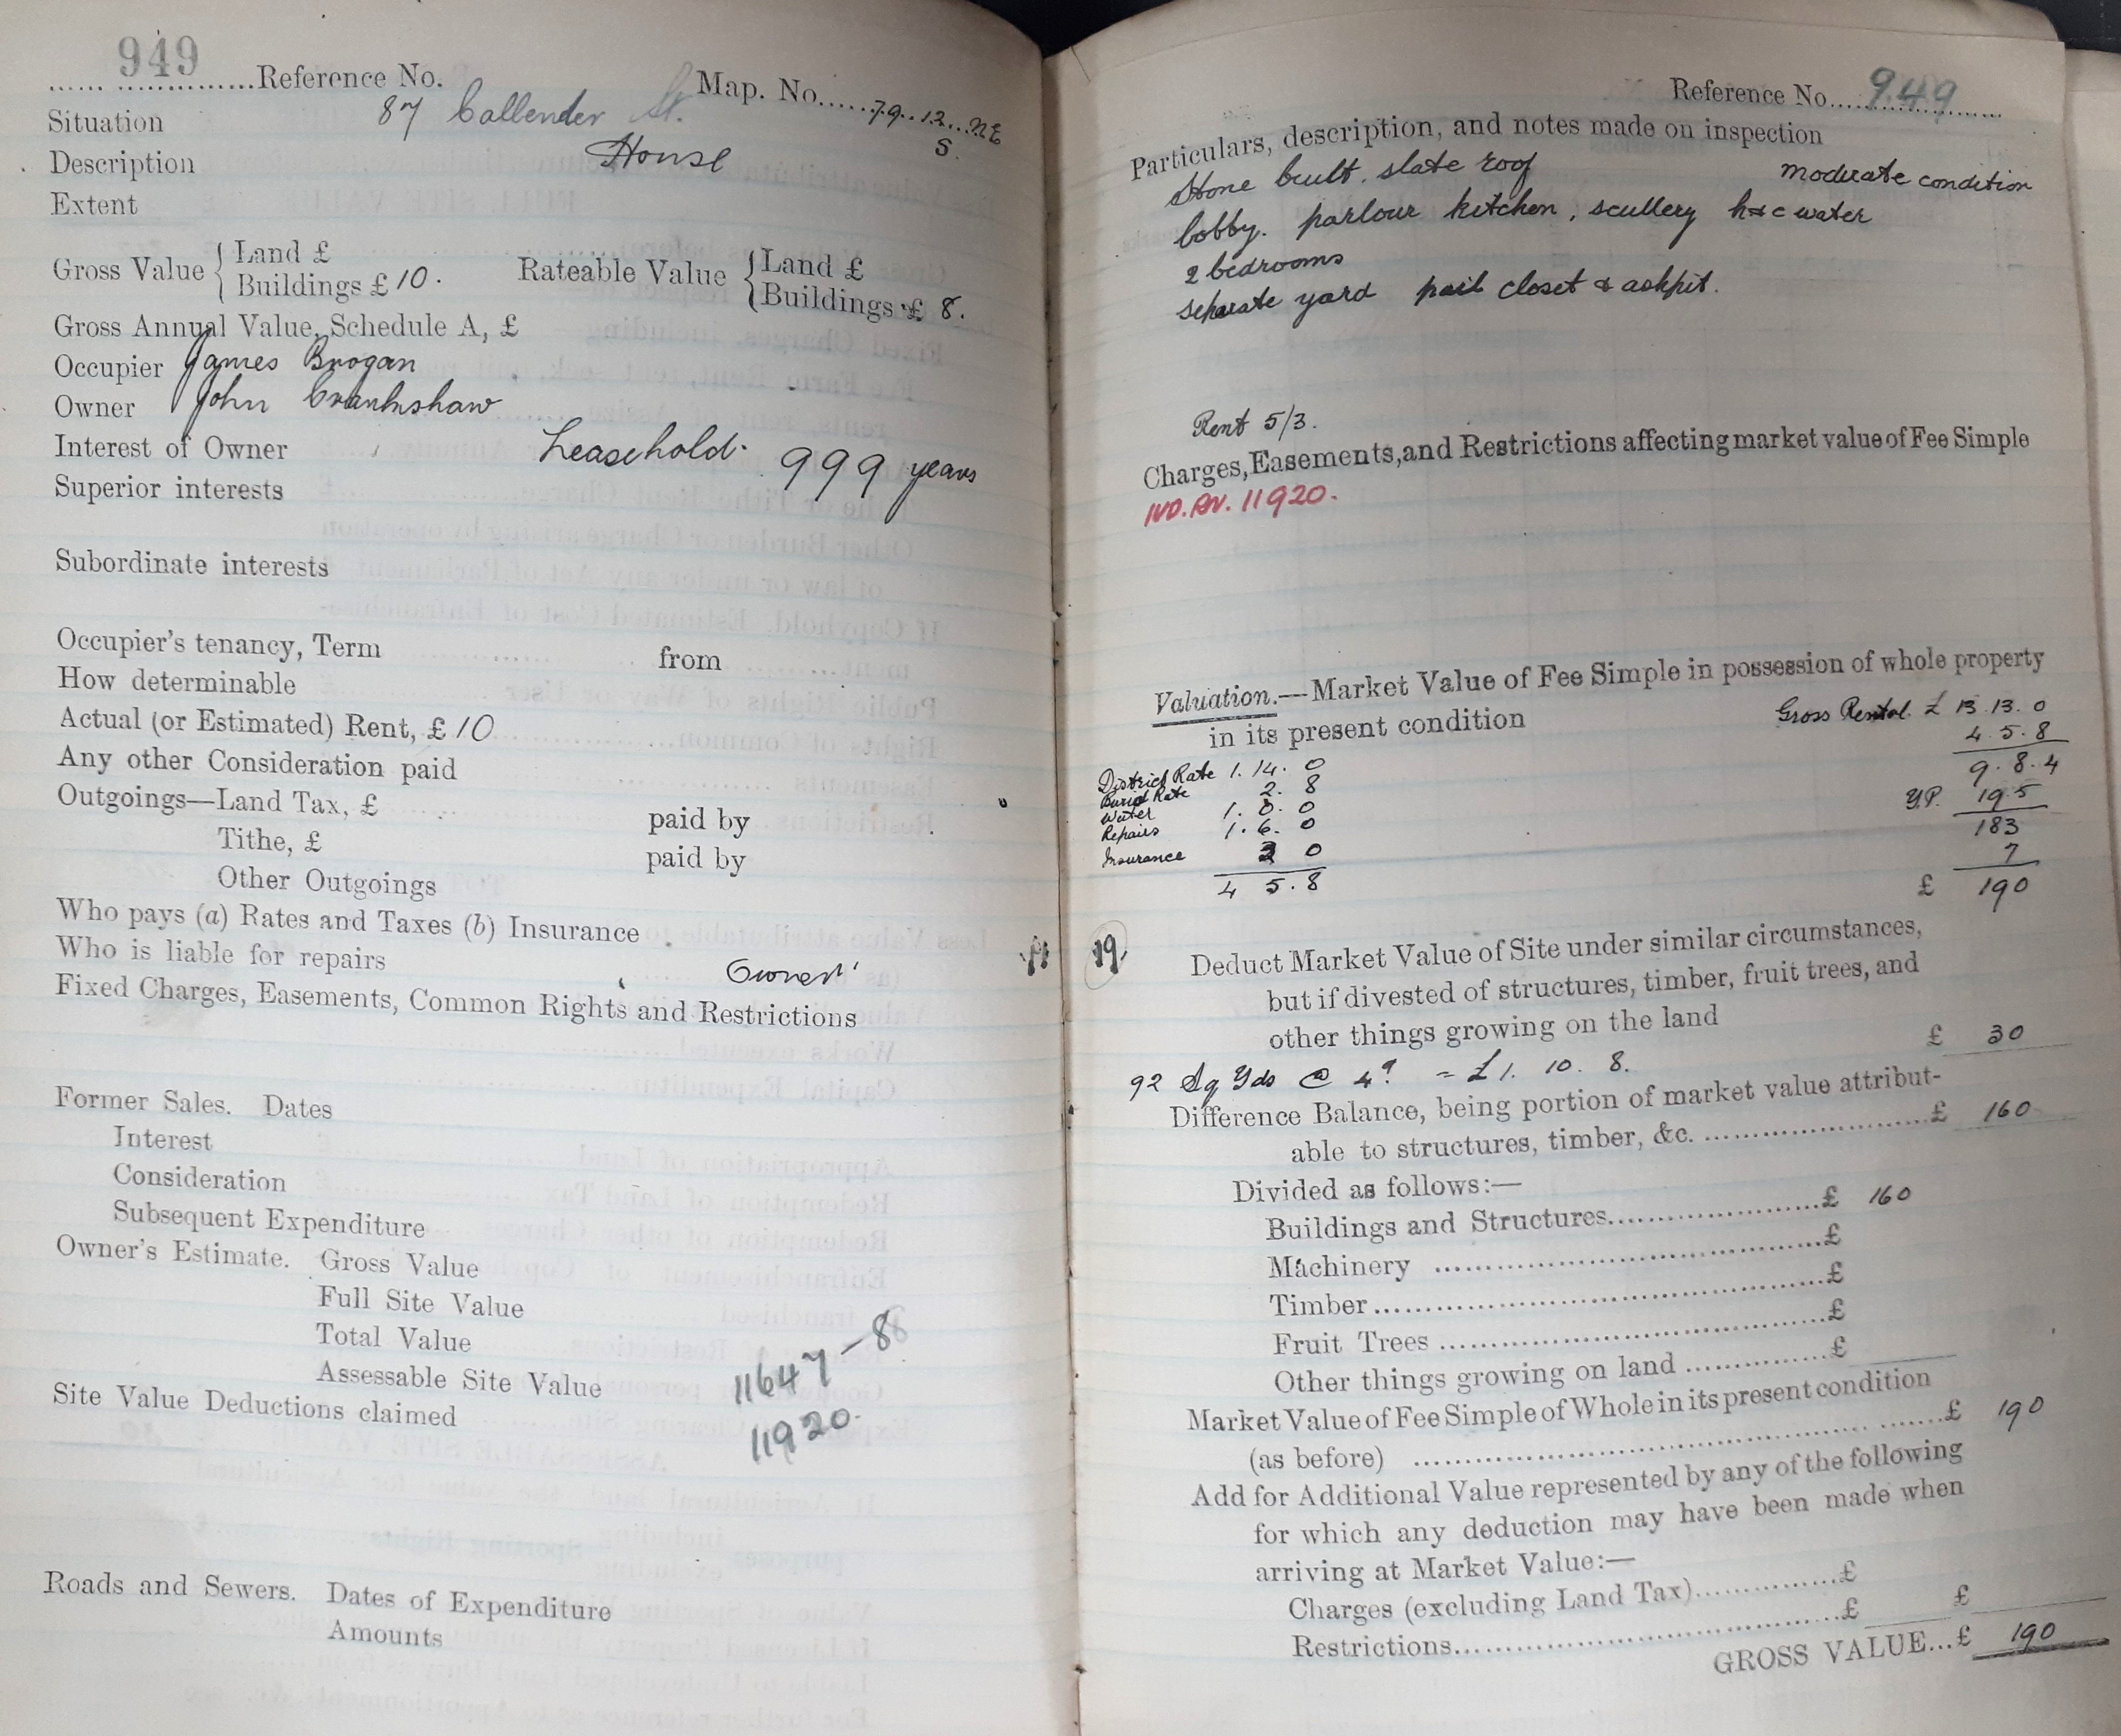 949
Reference No. Map. No. 79.12.NE
S.
Situation 87 Callender St.
Description House
Extent
Gross Value { Land £
Buildings £ 10.
Rateable Value { Land £
Buildings £ 8.
Gross Annual Value, Schedule A, £
Occupier James Brogan
Owner John Crankshaw
Interest of Owner Leasehold. 999 years
Superior interests
Subordinate interests
Occupier's tenancy, Term from
How determinable
Actual (or Estimated) Rent, £ 10
Any other Consideration paid
Outgoings—Land Tax, £ paid by
Tithe, £ paid by
Other Outgoings
Who pays (a) Rates and Taxes (b) Insurance
Who is liable for repairs Owner
Fixed Charges, Easements, Common Rights and Restrictions
Former Sales. Dates
Interest
Consideration
Subsequent Expenditure
Owner's Estimate. Gross Value
Full Site Value
Total Value
Assessable Site Value
Site Value Deductions claimed
11647 - 88
11920.
Roads and Sewers. Dates of Expenditure
Amounts
Reference No. 949
Particulars, description, and notes made on inspection
Stone built. slate roof moderate condition
lobby. parlour kitchen, scullery h & c water
2 bedrooms
separate yard pail closet & ashpit.
Rent 5/3.
Charges, Easements, and Restrictions affecting market value of Fee Simple
11920.
Valuation.—Market Value of Fee Simple in possession of whole property
in its present condition
Gross Rental £ 13. 13. 0
4. 5. 8
9. 8. 4
Y.P. 19.5
183
7
£ 190
District Rate 1. 14. 0
Burial Rate 2. 8
Water 1. 0. 0
Repairs 1. 6. 0
Insurance 3 0
4 5. 8
19
Deduct Market Value of Site under similar circumstances,
but if divested of structures, timber, fruit trees, and
other things growing on the land £ 30
92 Sq Yds @ 4d = £1. 10. 8.
Difference Balance, being portion of market value attribut-
able to structures, timber, &c. £ 160
Divided as follows:—
Buildings and Structures £ 160
Machinery £
Timber £
Fruit Trees £
Other things growing on land £
Market Value of Fee Simple of Whole in its present condition
(as before) £ 190
Add for Additional Value represented by any of the following
for which any deduction may have been made when
arriving at Market Value:—
Charges (excluding Land Tax) £
Restrictions £ £
GROSS VALUE...£ 190